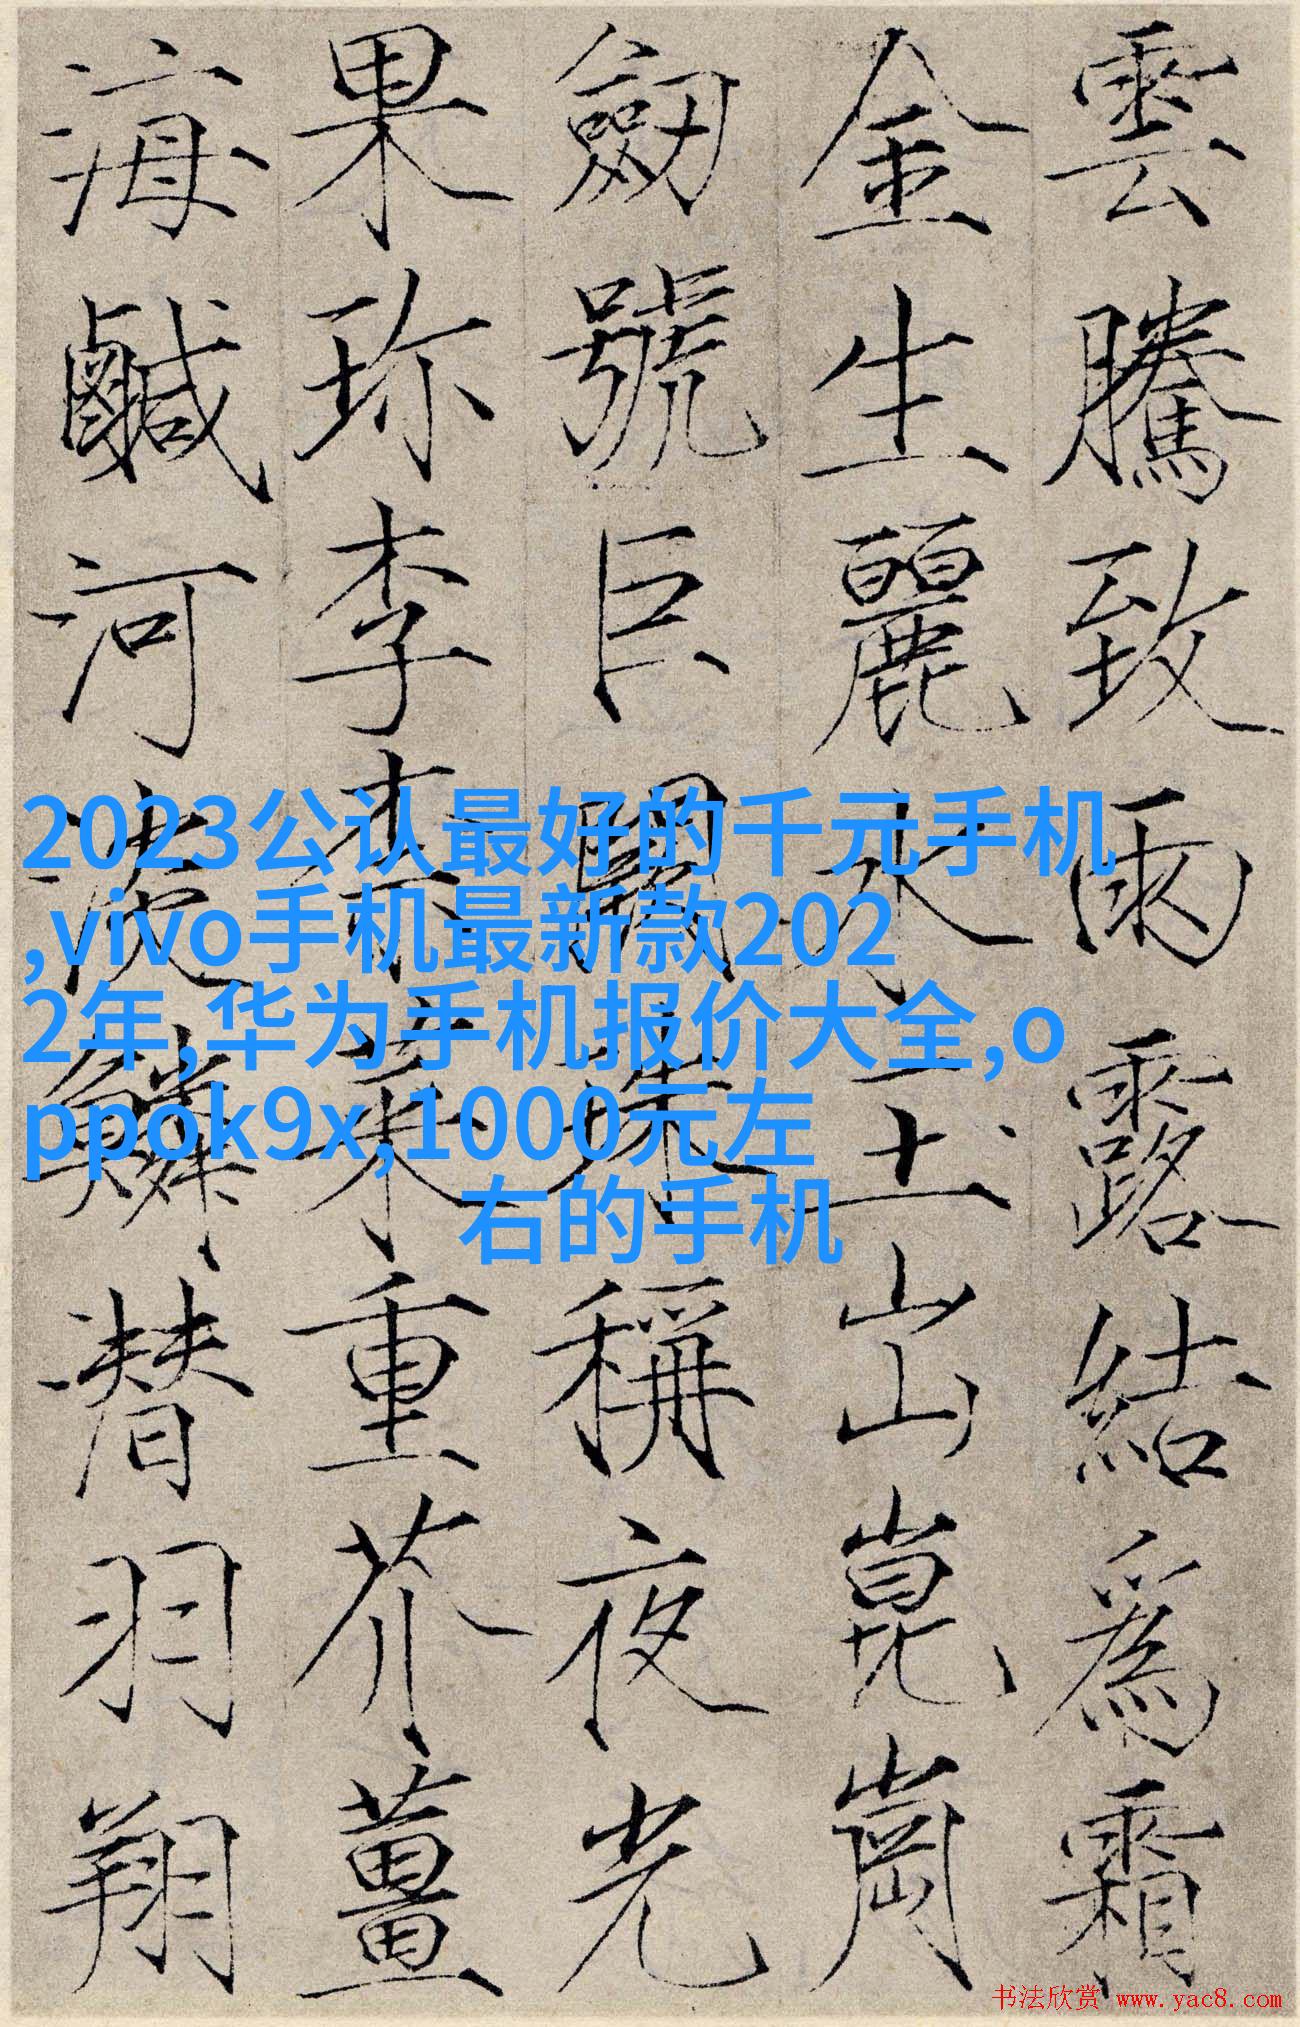 雲騰致雨露結爲霜
金生麗水玉出崑崗
劒號巨闕珠稱夜光
果珎李柰菜重芥薑
海鹹河淡鱗潜羽翔
2023公认最好的千元手机
,vivo手机最新款202
2年,华为手机报价大全,o
ppok9x,1000元左
右的手机
书法欣赏 www.yac8.com